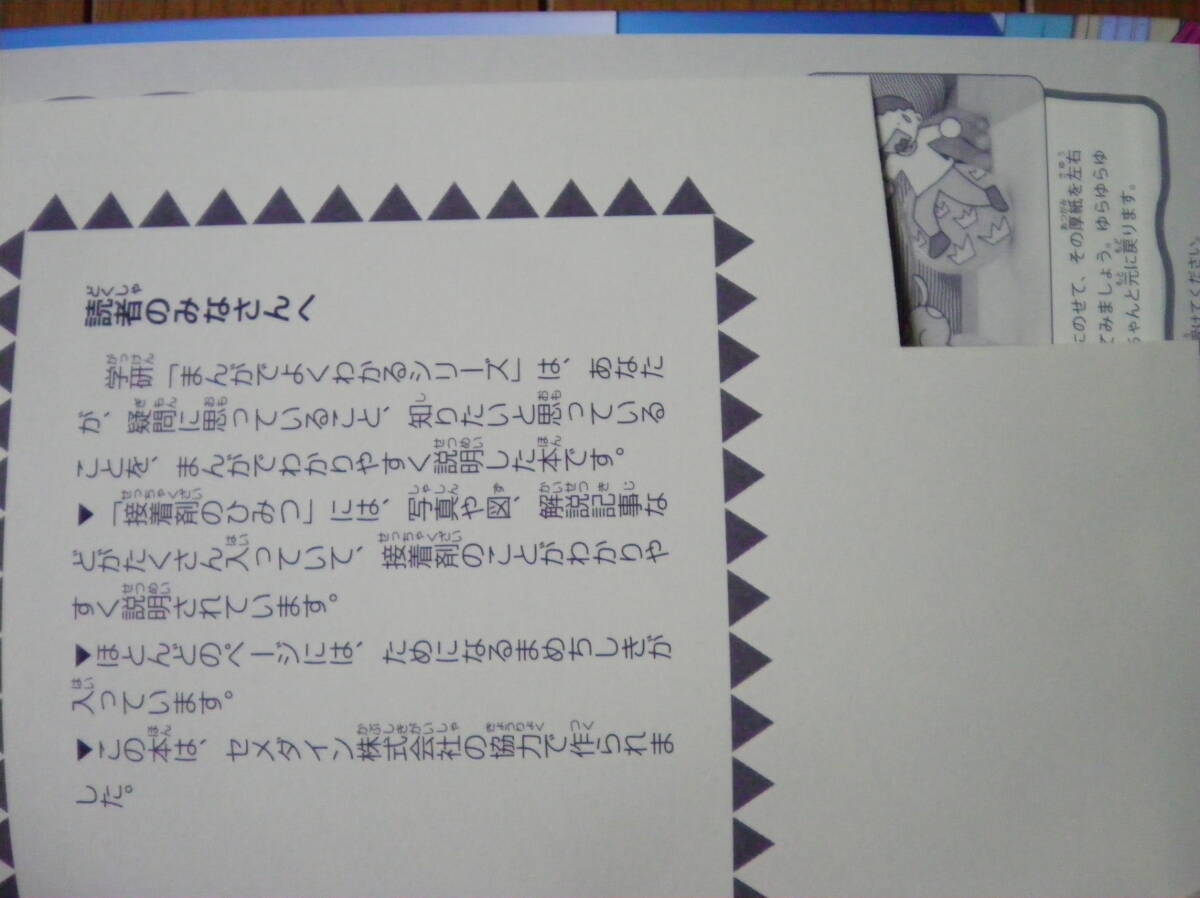 読者のみなさんへ
学研「まんがでよくわかるシリーズ」は、あなた
が、疑問に思っていること、知りたいと思っている
ことを、まんがでわかりやすく説明した本です。
▼「接着剤のひみつ」には、写真や図、解説記事な
どがたくさん入っていて、接着剤のことがわかりや
すく説明されています。
▼ほとんどのページには、ためになるまめちしきが
入っています。
▼この本は、セメダイン株式会社の協力で作られま
した。
にのせて、その厚紙を左右
てみましょう。ゆらゆらゆ
ちゃんと元に戻ります。
せてください。